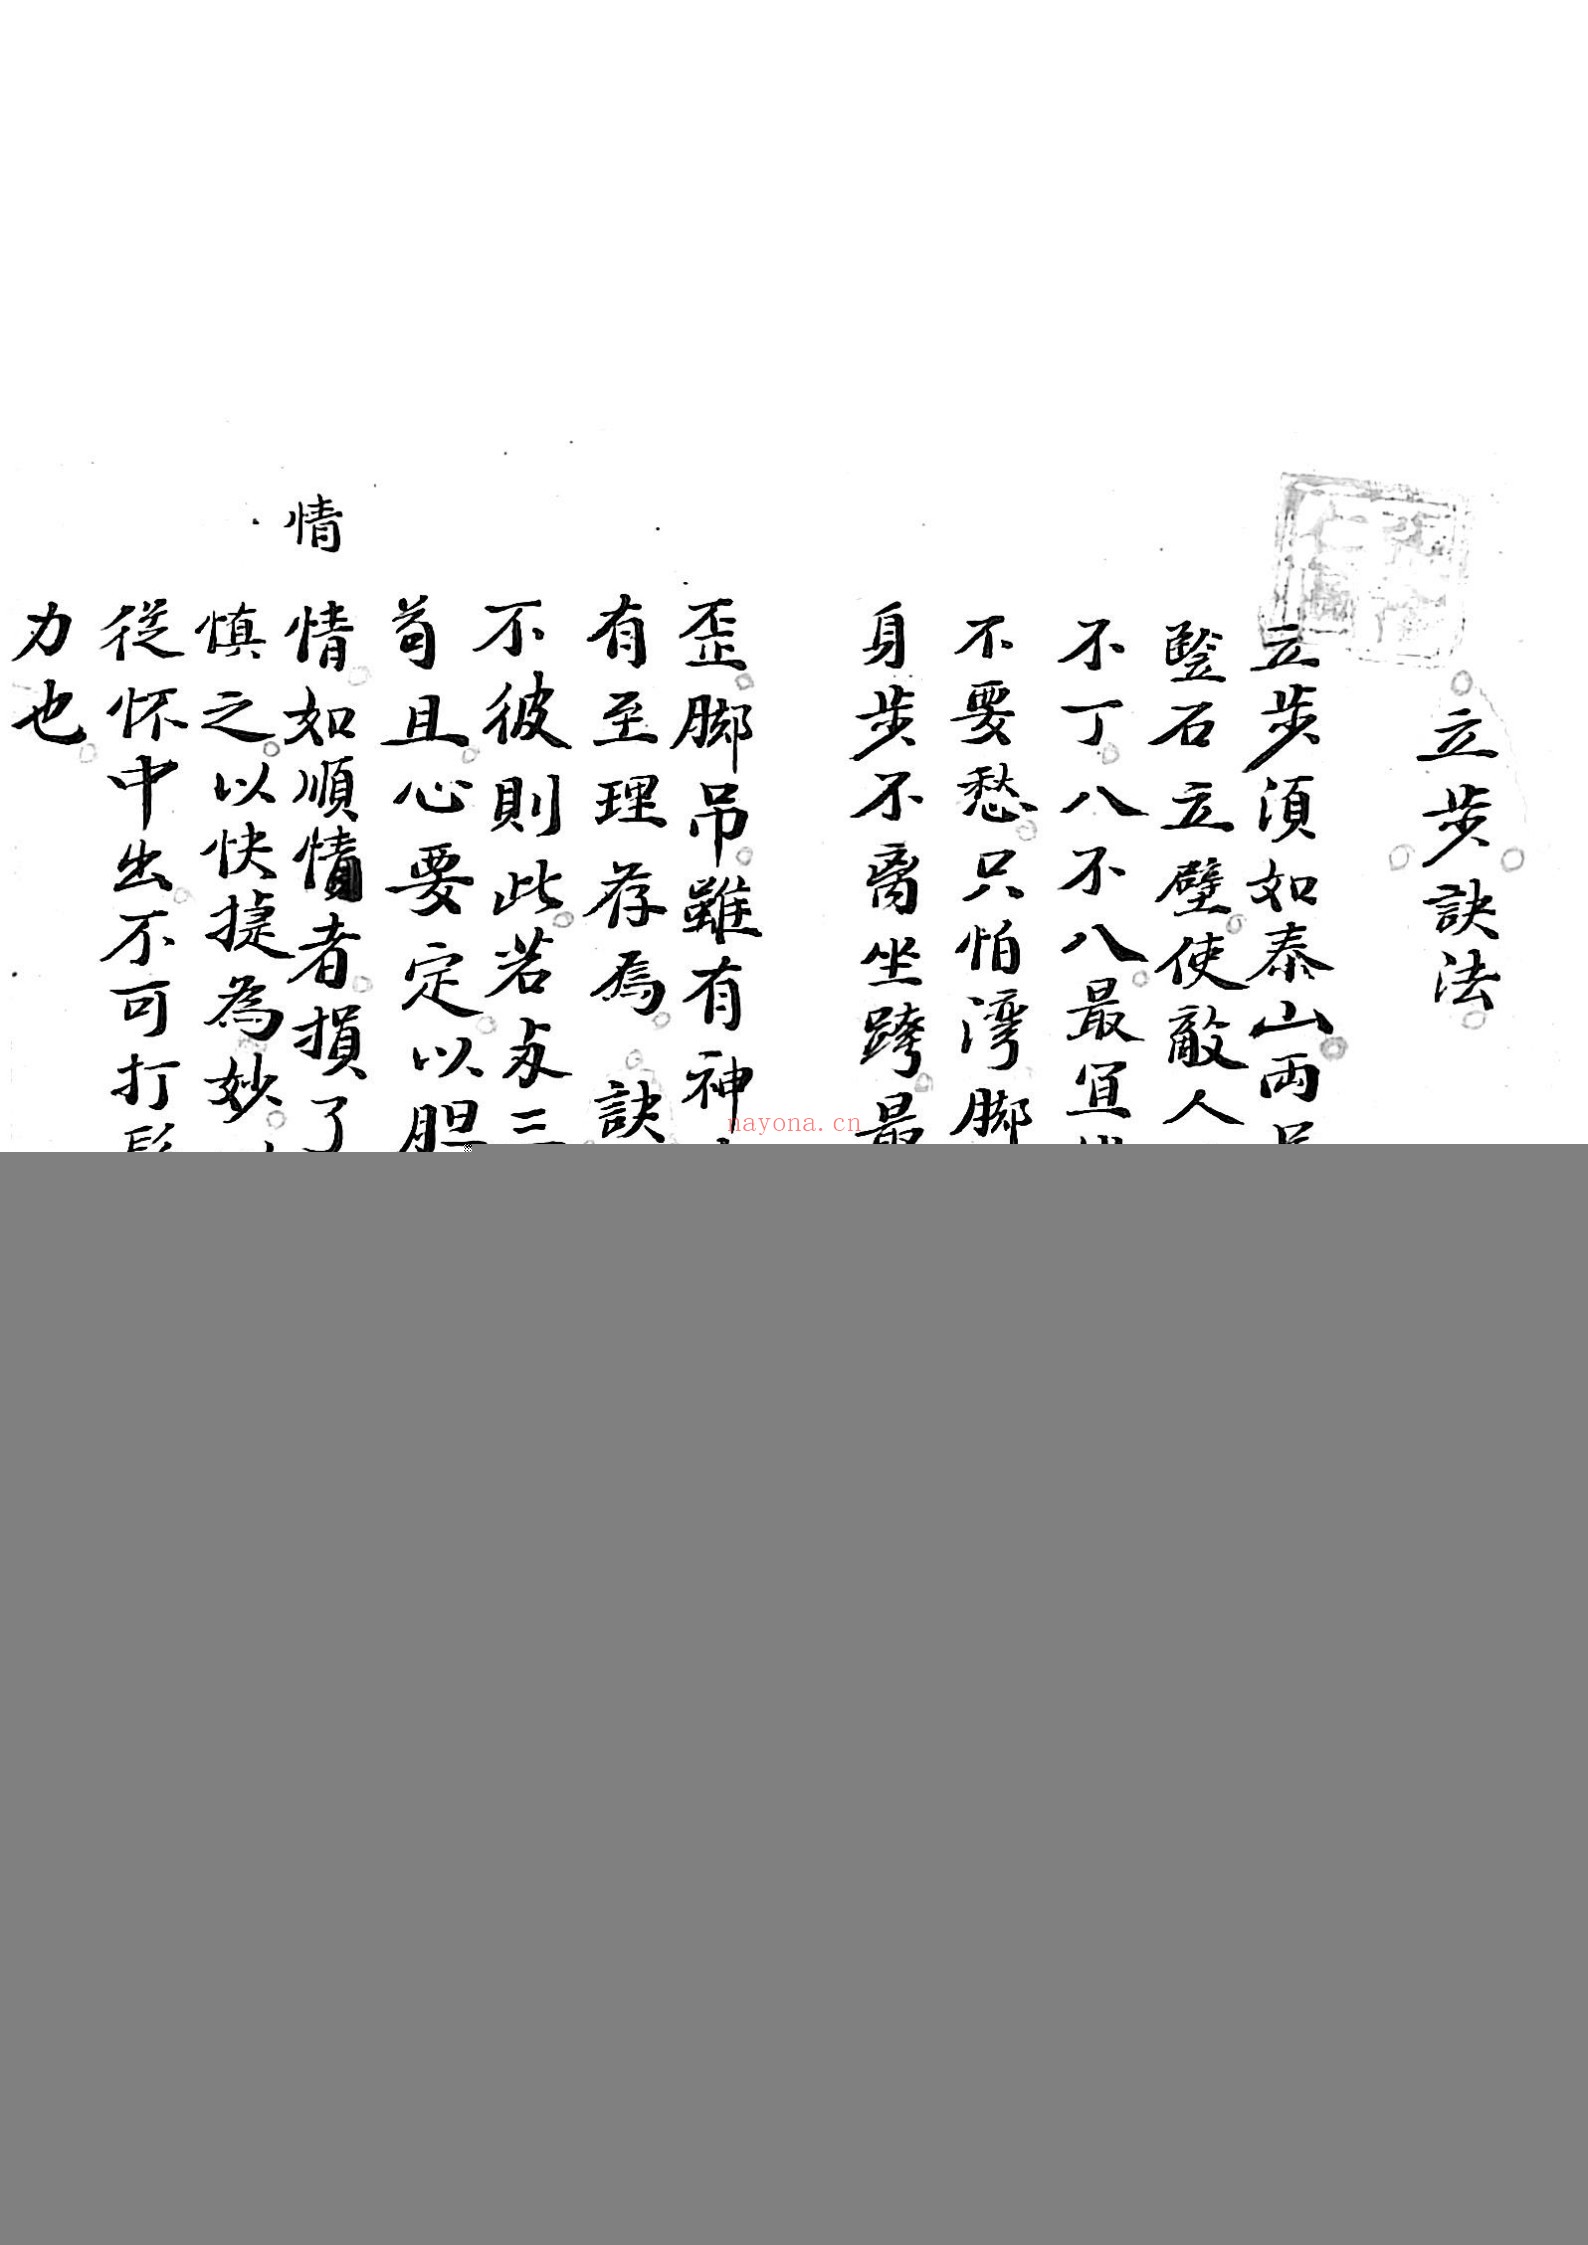 立步訣法
立步須如泰山兩
豎石立壁使敵人
不丁八不八最宜
不要愁只怕湾脚
身步不离坐跨最
歪脚吊雖有神
有至理存焉訣
不彼則此若
三
苟且心要定以胆
情
情如順情者損了
慎之以快捷為妙
從怀中出不可打
力也
nayona.cn